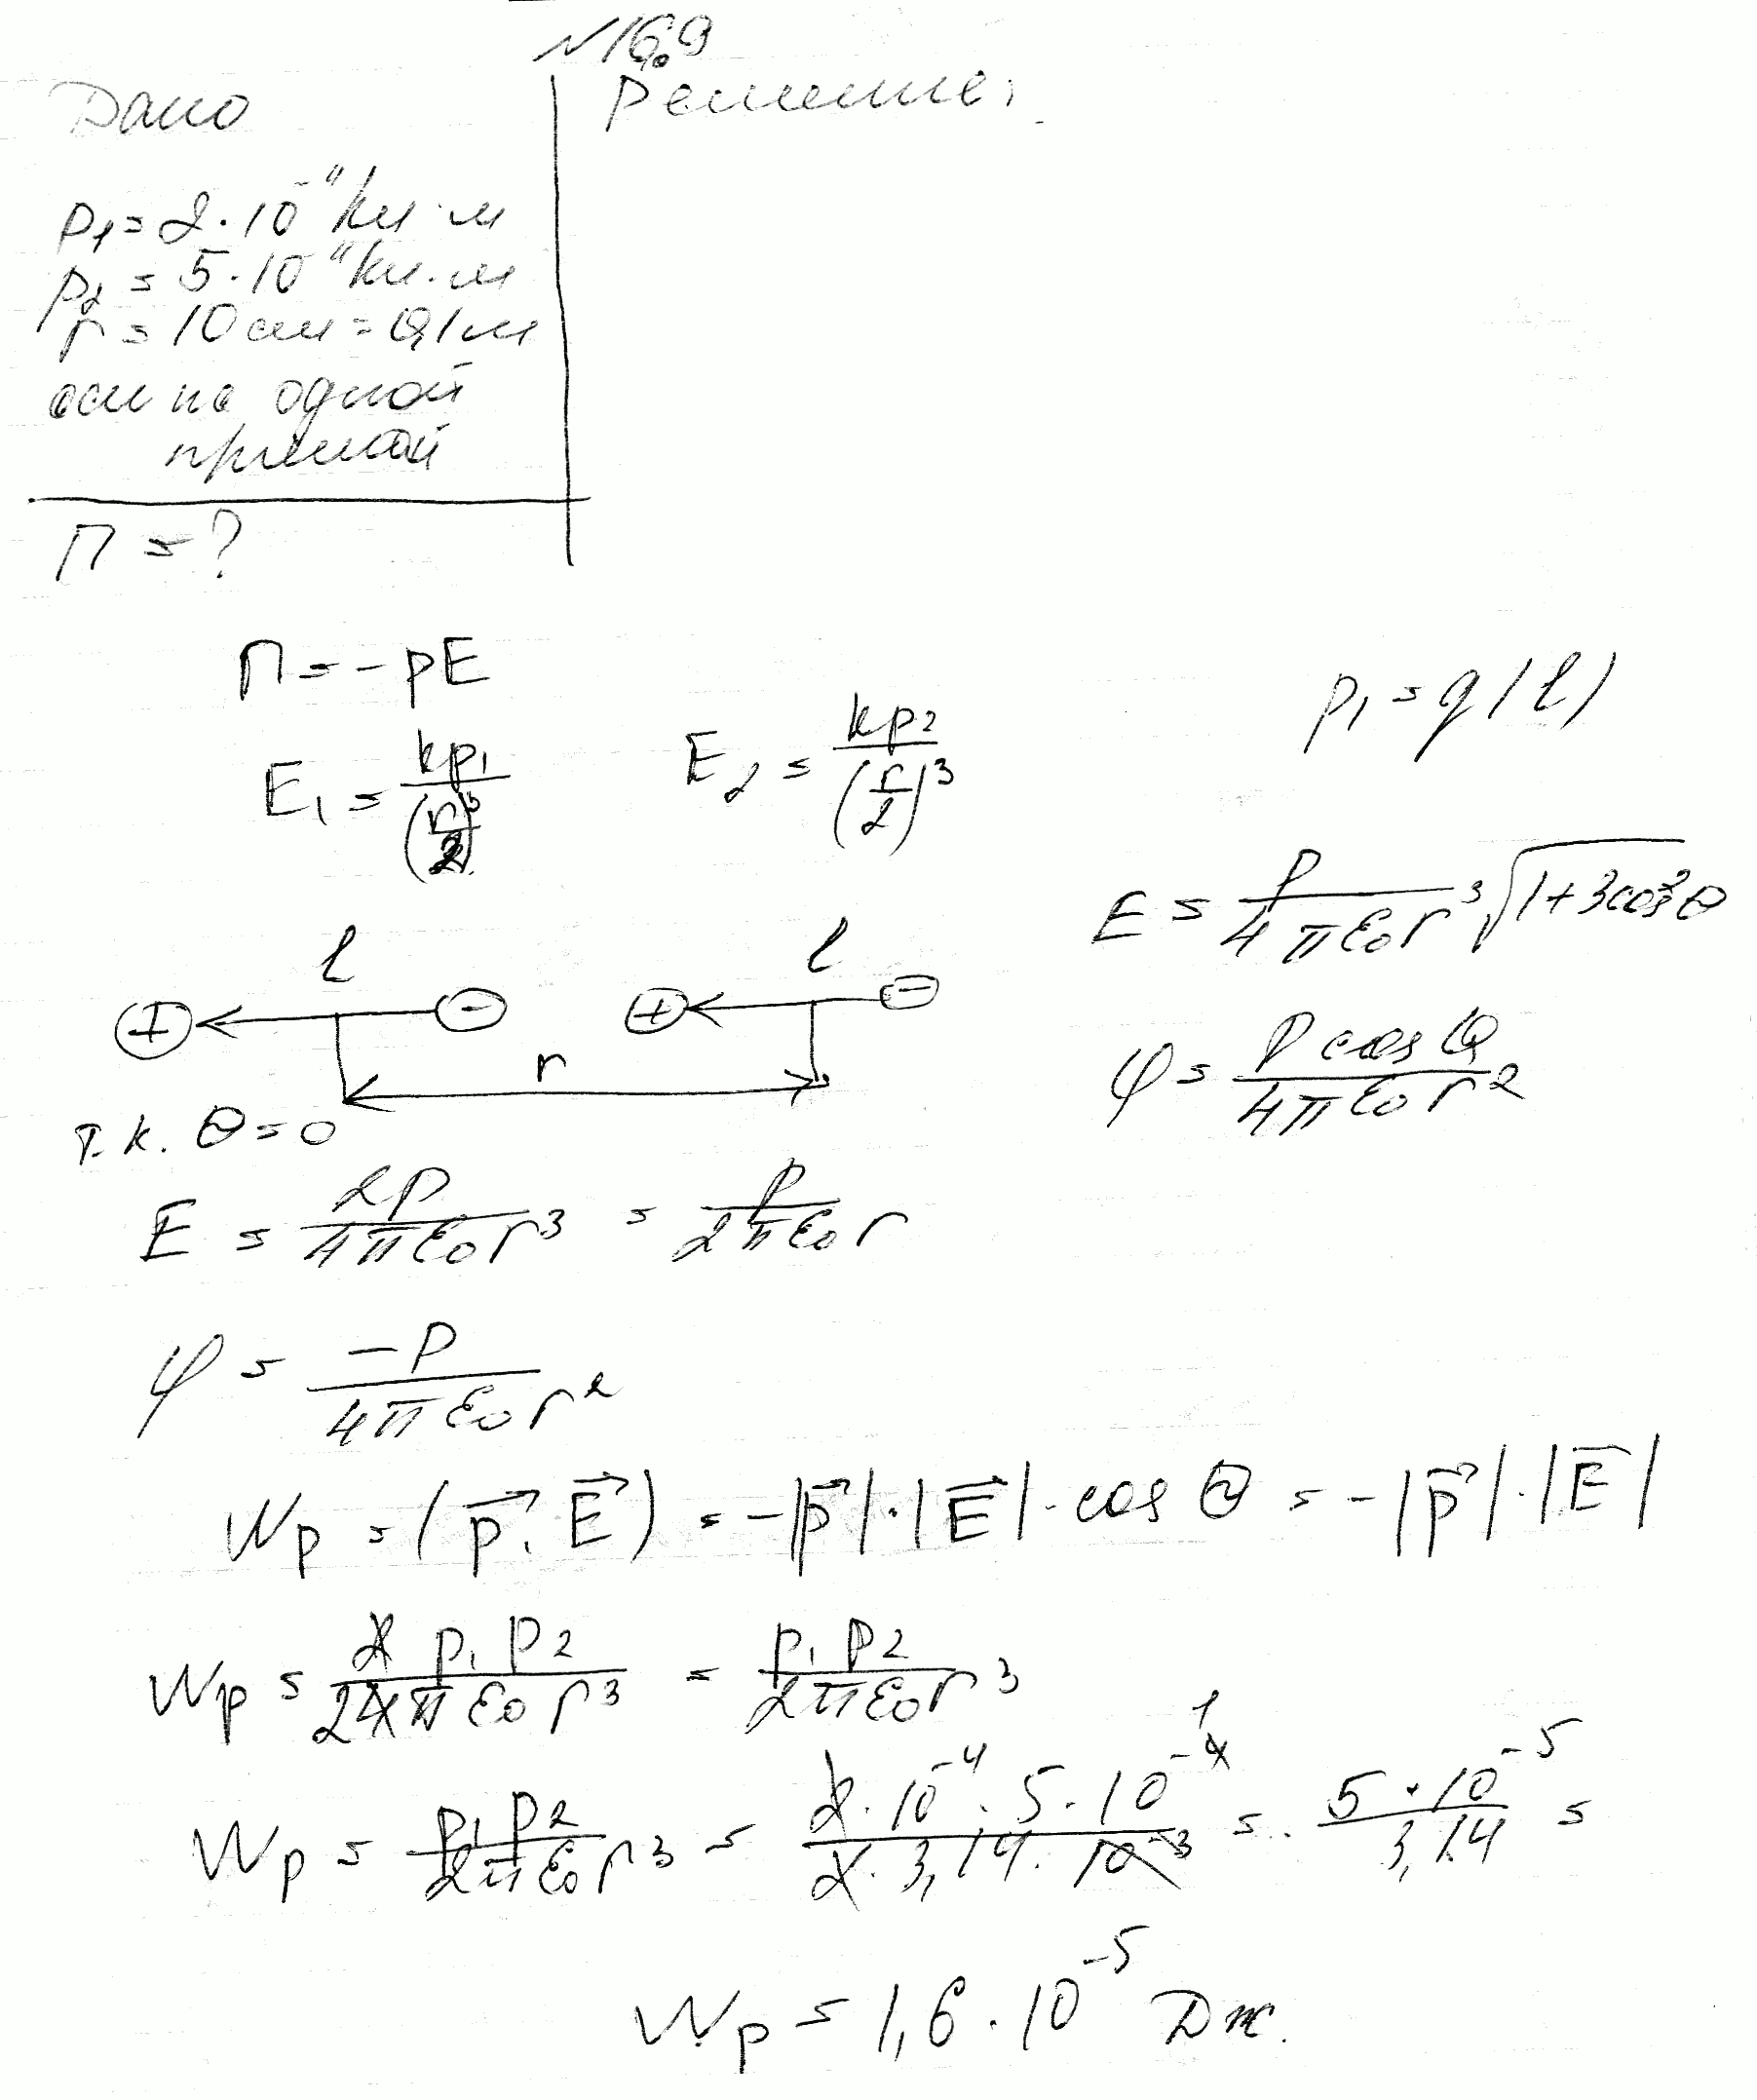 №16.9
Дано
Решение:
p₁ = 2·10⁻¹¹ Кл·м
p₂ = 5·10⁻¹¹ Кл·м
r = 10 см = 0,1 м
оси на одной
прямой
П = ?
П = -pE
p₁ = q(l)
E₁ = kp₁/(r/2)³ E₂ = kp₂/(r/2)³
E = p/(4πε₀r³) √(1+3cos²θ)
l l
+ - + -
r
φ = P cos θ/(4πε₀r²)
т.к. θ = 0
E = 2P/(4πε₀r³) = p/(2πε₀r)
φ = -P/(4πε₀r²)
Wp = (p⃗·E⃗) = -|p⃗|·|E⃗|·cos θ = -|p⃗|·|E⃗|
Wp = 2p₁p₂/(24πε₀r³) = p₁p₂/(2πε₀r³)
Wp = p₁p₂/(2πε₀r³) = 2·10⁻⁴·5·10⁻⁴ ¹/(2·3,14·10⁻³) = 5·10⁻⁵/3,14 =
Wp = 1,6·10⁻⁵ Дж.